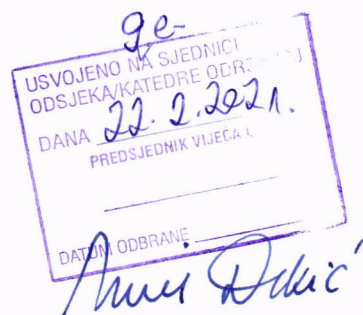 ge-
USVOJENO NA SJEDNICI
ODSJEKA/KATEDRE
DANA 22. 2. 2021.
PREDSJEDNIK VIJEĆA
DATUM ODBRANE